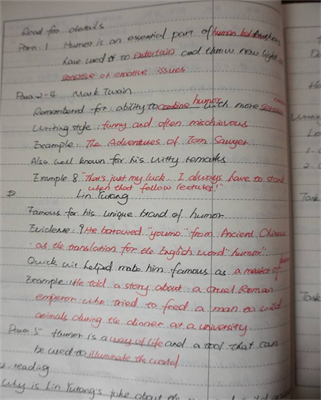 Read for details
Para. 1 Humor is an essential part of human
have used it to entertain and throw new light
sensitive or emotive issues
Para. 2-4 Mark Twain
Remembered for: ability to combine humor with more
Writing style: funny and often mischievous
Example: The Adventures of Tom Sawyer
Also well known for his witty remarks
Example 8. "That's just my luck. I always have to
when that follow lectures!"
Lin Yutang
Famous for his unique brand of humor.
Evidence: He borrowed "youmo" from Ancient Chinese
as the translation for the English word "humor".
Quick wit helped make him famous as a master of
Example: He told a story about a cruel Roman
emperor who tried to feed a man to wild
animals during the dinner at a university.
Para 5 Humor is a way of life and a tool that can
be used to illuminate the world
reading
Why is Lin Yutang's joke about
Task
Task